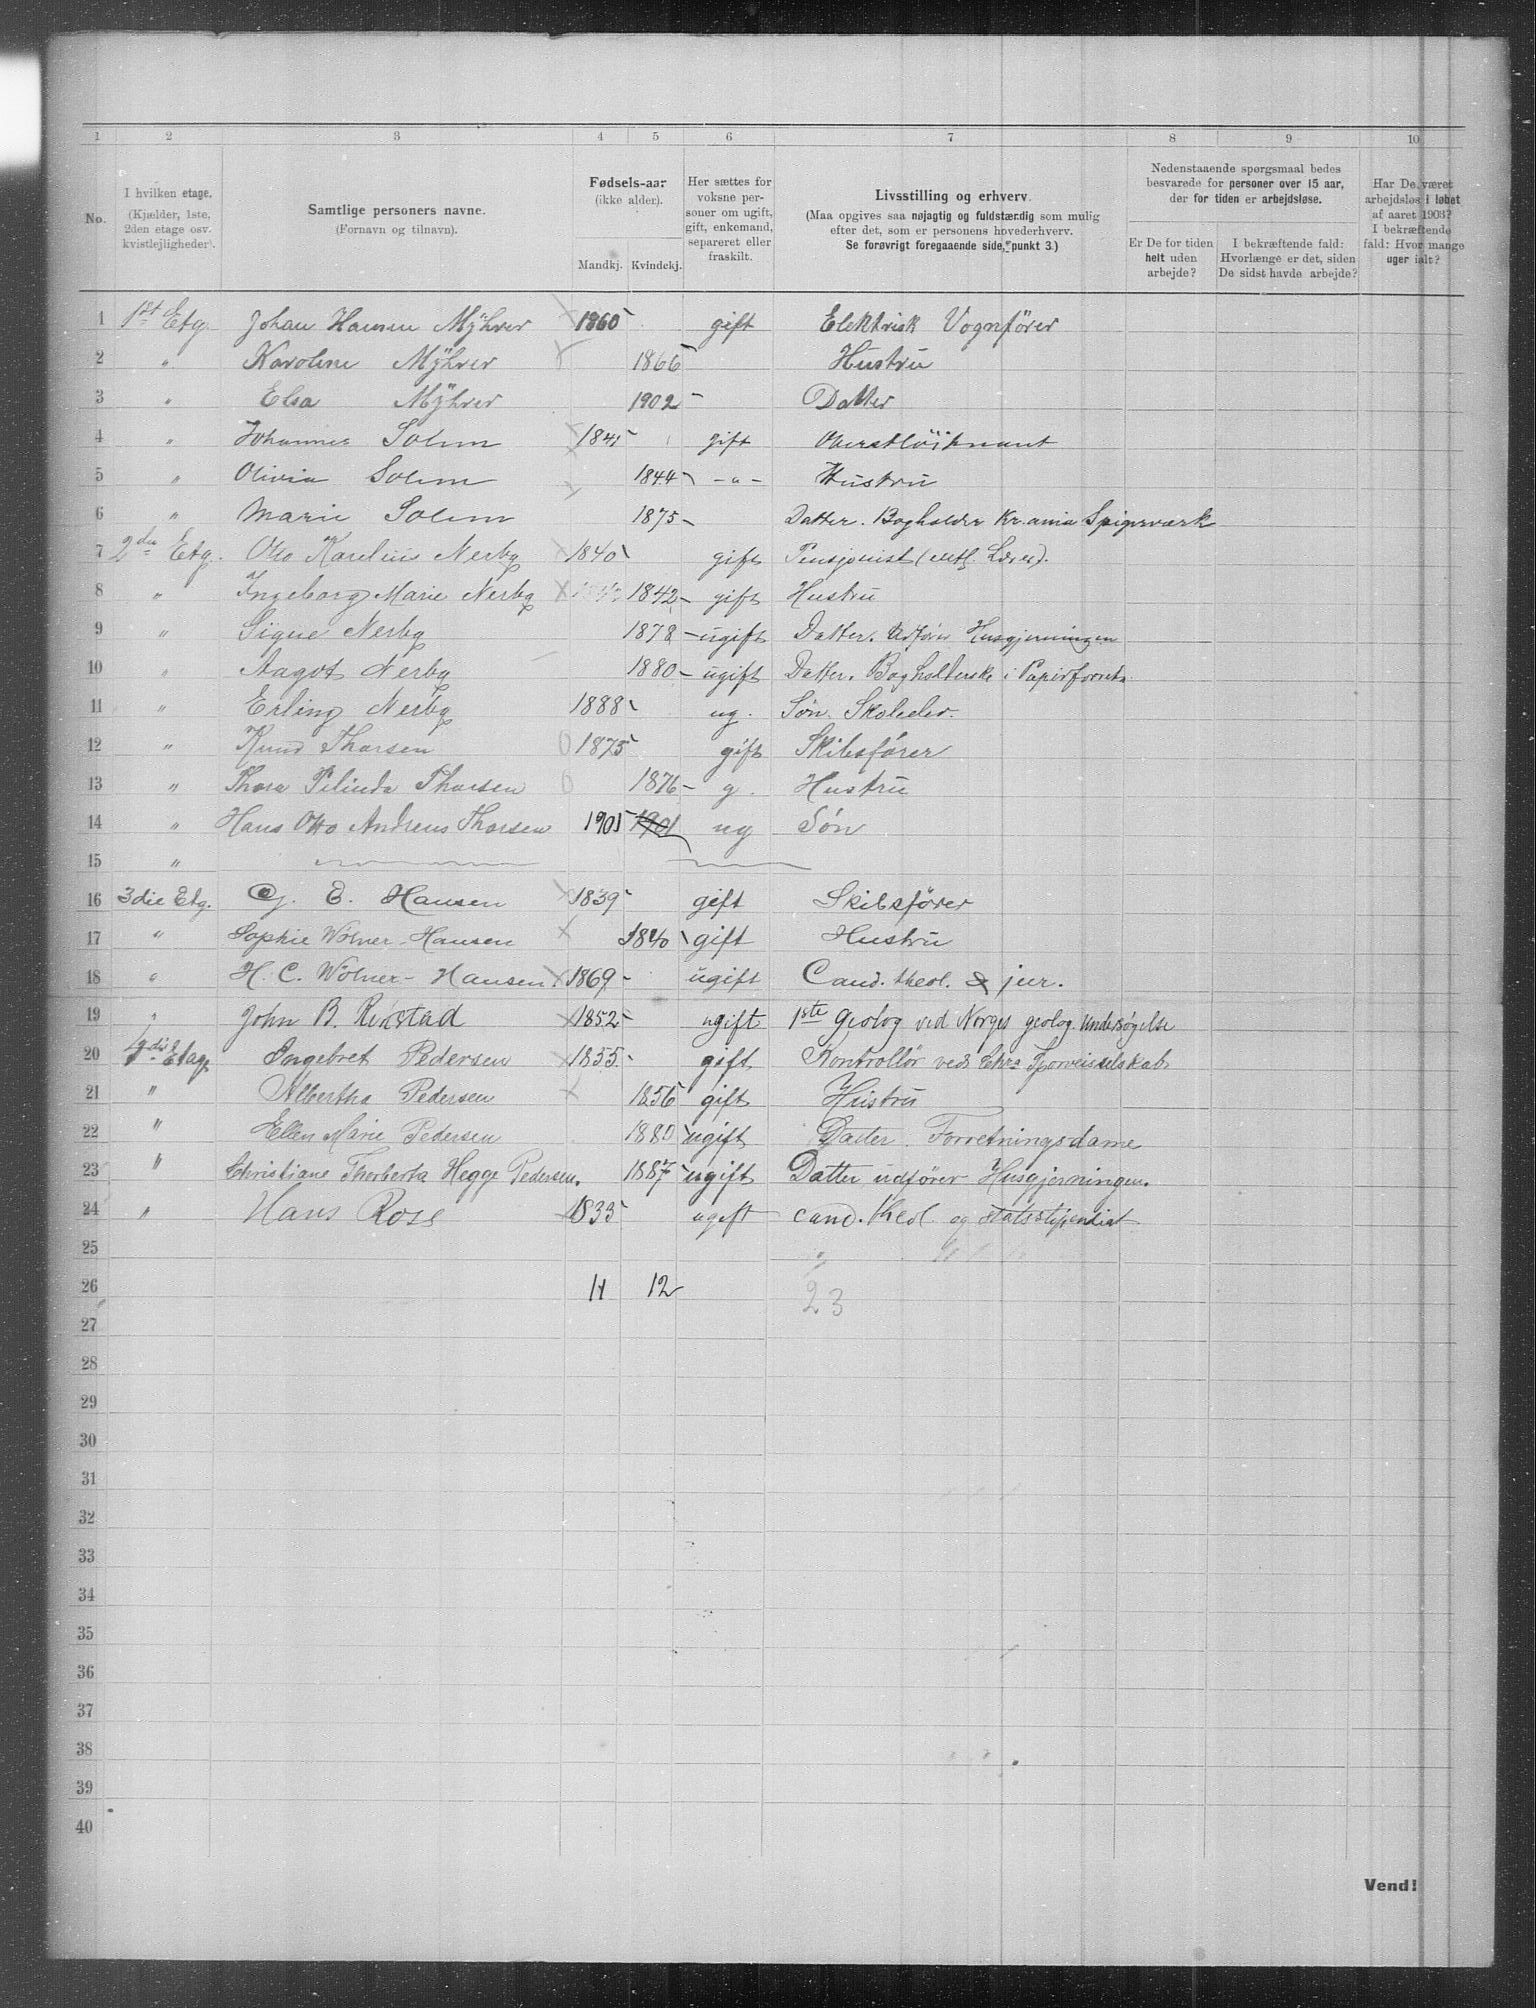 1 2 3 4 5 6 7 8 9 10
No.
I hvilken etage.
(Kjælder, 1ste,
2den etage osv.
kvistlejligheder).
Samtlige personers navne.
(Fornavn og tilnavn).
Fødsels-aar
(ikke alder).
Mandkj. Kvindekj.
Her sættes for
voksne per-
soner om ugift,
gift, enkemand,
separeret eller
fraskilt.
Livsstilling og erhverv.
(Maa opgives saa nøjagtig og fuldstændig som mulig
efter det, som er personens hovederhverv.
Se forøvrigt foregaaende side, punkt 3.)
Nedenstaaende spørgsmaal bedes
besvarede for personer over 15 aar,
der for tiden er arbejdsløse.
Er De for tiden
helt uden
arbejde?
I bekræftende fald:
Hvorlænge er det, siden
De sidst havde arbejde?
Har De været
arbejdsløs i løbet
af aaret 1903?
I bekræftende
fald: Hvor mange
uger ialt?
1 1st Etg. Johan Hansen Mÿhrer 1860 gift Elektrisk Vognfører
2 " Karoline Mÿhrer 1866 Hustru
3 " Elsa Mÿhrer 1902 - Datter
4 " Johannes Solem 1841 gift Oberstløitnant
5 " Olivia Solem 1844 - " - Hustru
6 " Marie Solem 1875 - Datter. Bogholder Kr.ania Spigerværk
7 2den Etg. Otto Karelius Nerby 1840 gift Pensjonist ( Lærer).
8 " Ingeborg Marie Nerby 1842 - gift Hustru
9 " Signe Nerby 1878 - ugift Datter. Udfører Husgjerningen
10 " Aagot Nerby 1880 - ugift Datter. Bogholderske i
11 " Erling Nerby 1888 ug. Søn. Skoleelev.
12 " Knud Thorsen 0 1875 gift Skibsfører
13 " Thora Thorsen 0 1876 - g. Hustru
14 " Hans Otto Andreas Thorsen 1901 1901 ug Søn
15 "
16 3die Etg. E. Hansen 1839 gift Skibsfører
17 " Sophie Wölner-Hansen 1840 gift Hustru
18 " H. C. Wölner-Hansen 1869 - ugift Cand. theol. & jur.
19 " John B. Rekstad 1852 - ugift 1ste Geolog ved Norges geolog. Undersøgelse
20 4die Etage Ingebret Pedersen 1855 - gift Kontrollør ved Chr.a Sporveisselskab
21 " Albertha Pedersen 1856 gift Hustru
22 " Ellen Marie Pedersen 1880 ugift Datter. Forretningsdame
23 " Christiane Thorberta Hegge Pedersen. 1887 ugift Datter udfører Husgjerningen.
24 " Hans Ross 1833 ugift cand. theol. og statsstipendiat
25
26 11 12 23
27
28
29
30
31
32
33
34
35
36
37
38
39
40
Vend!